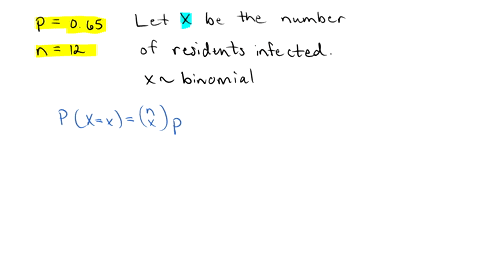 p = 0.65 Let X be the number
n = 12 of residents infected.
X ~ binomial
P(X=x) = (n x) p